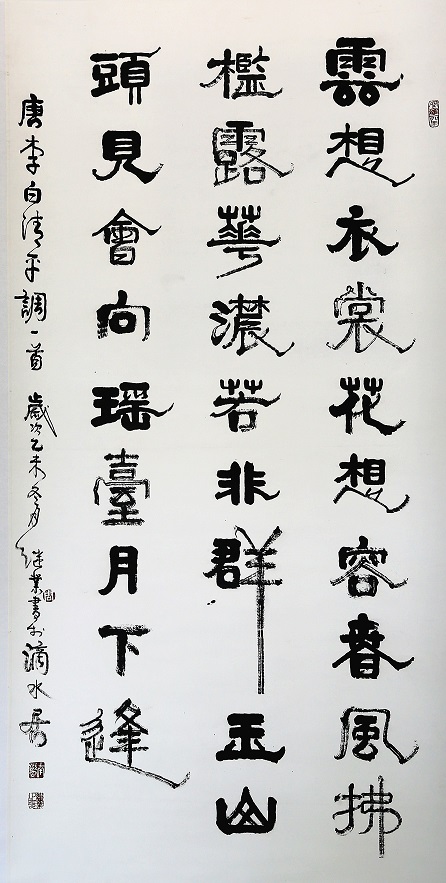 雲想衣裳花想容春風拂
檻露華濃若非群玉山
頭見會向瑶臺月下逢
唐李白清平調一首 歲次乙未冬月继業書於滴水居